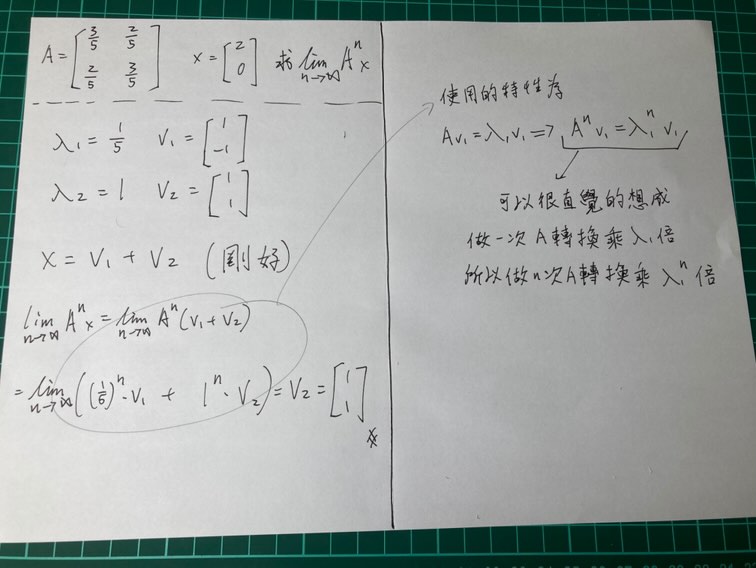 A = [3/5 2/5; 2/5 3/5] x = [2; 0] 求 lim_{n→∞} Aⁿx
λ₁ = 1/5 V₁ = [1; -1]
λ₂ = 1 V₂ = [1; 1]
x = V₁ + V₂ (剛好)
lim_{n→∞} Aⁿx = lim_{n→∞} Aⁿ(V₁ + V₂)
= lim_{n→∞} ((1/5)ⁿ · V₁ + 1ⁿ · V₂) = V₂ = [1; 1]
使用的特性為
AV₁ = λ₁V₁ ⇒ AⁿV₁ = λ₁ⁿ V₁
可以很直覺的想成
做一次 A轉換乘 λ₁倍
所以做n次A轉換乘 λ₁ⁿ 倍